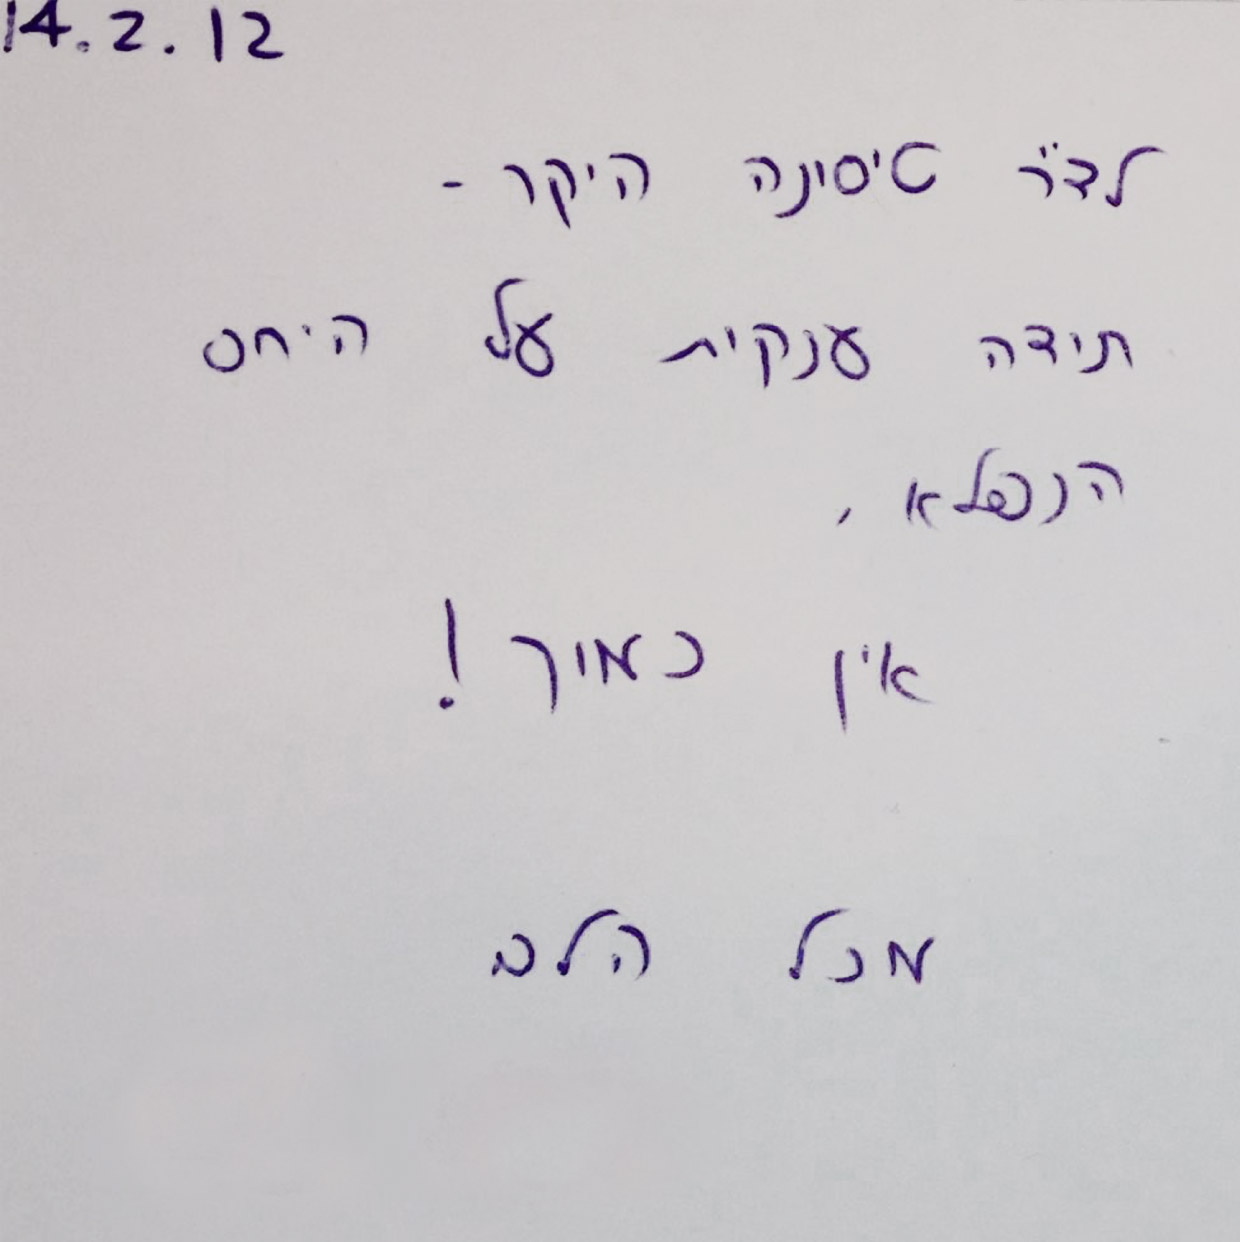 14.2.12
לד״ר טיסונה היקר -
תודה ענקית על היחס
הנפלא,
אין כמוך!
מכל הלב